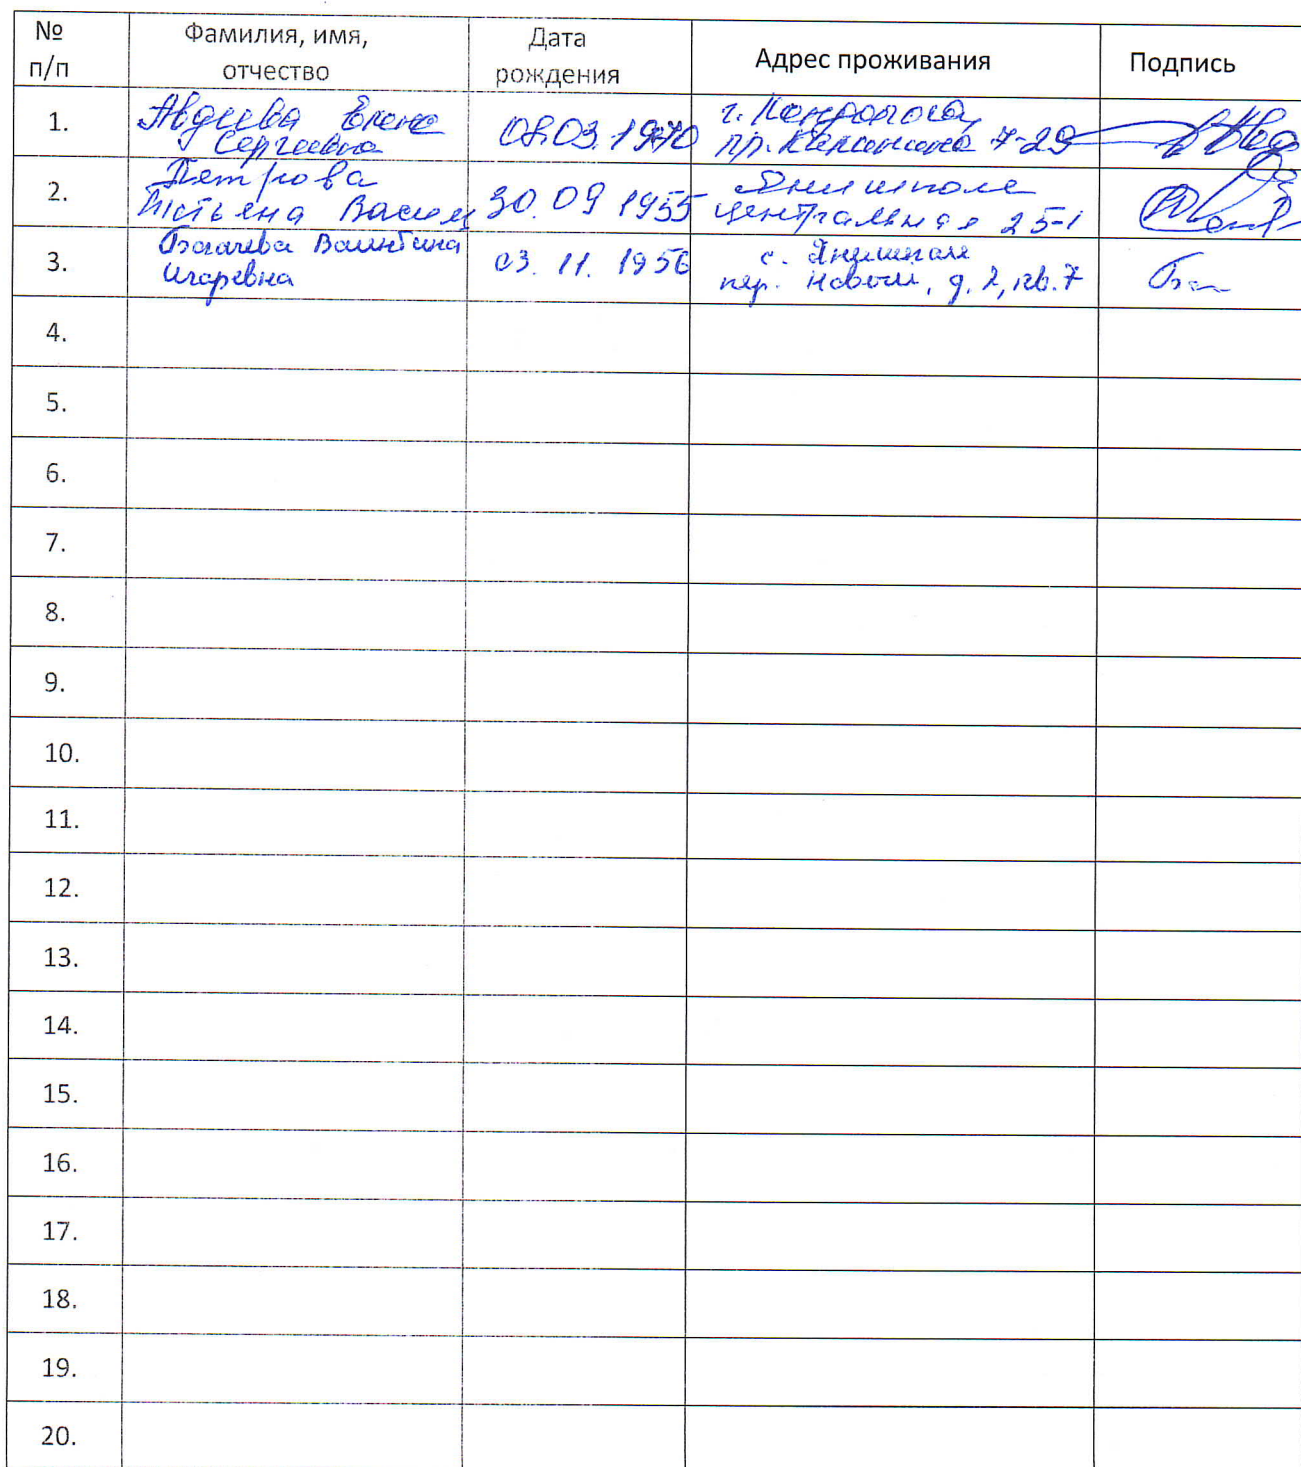 № п/п Фамилия, имя, отчество Дата рождения Адрес проживания Подпись
1. Авдеева Елена Сергеевна 08.03.1970 г. Кондопога, пр. Калинина 7-29
2. Петрова Татьяна Васил 30.09 1955 Янишполе центральная 25-1
3. Валентина Игоревна 03. 11. 1956 с. Янишполе пер. Новый, д. 2, кв. 7
4.
5.
6.
7.
8.
9.
10.
11.
12.
13.
14.
15.
16.
17.
18.
19.
20.